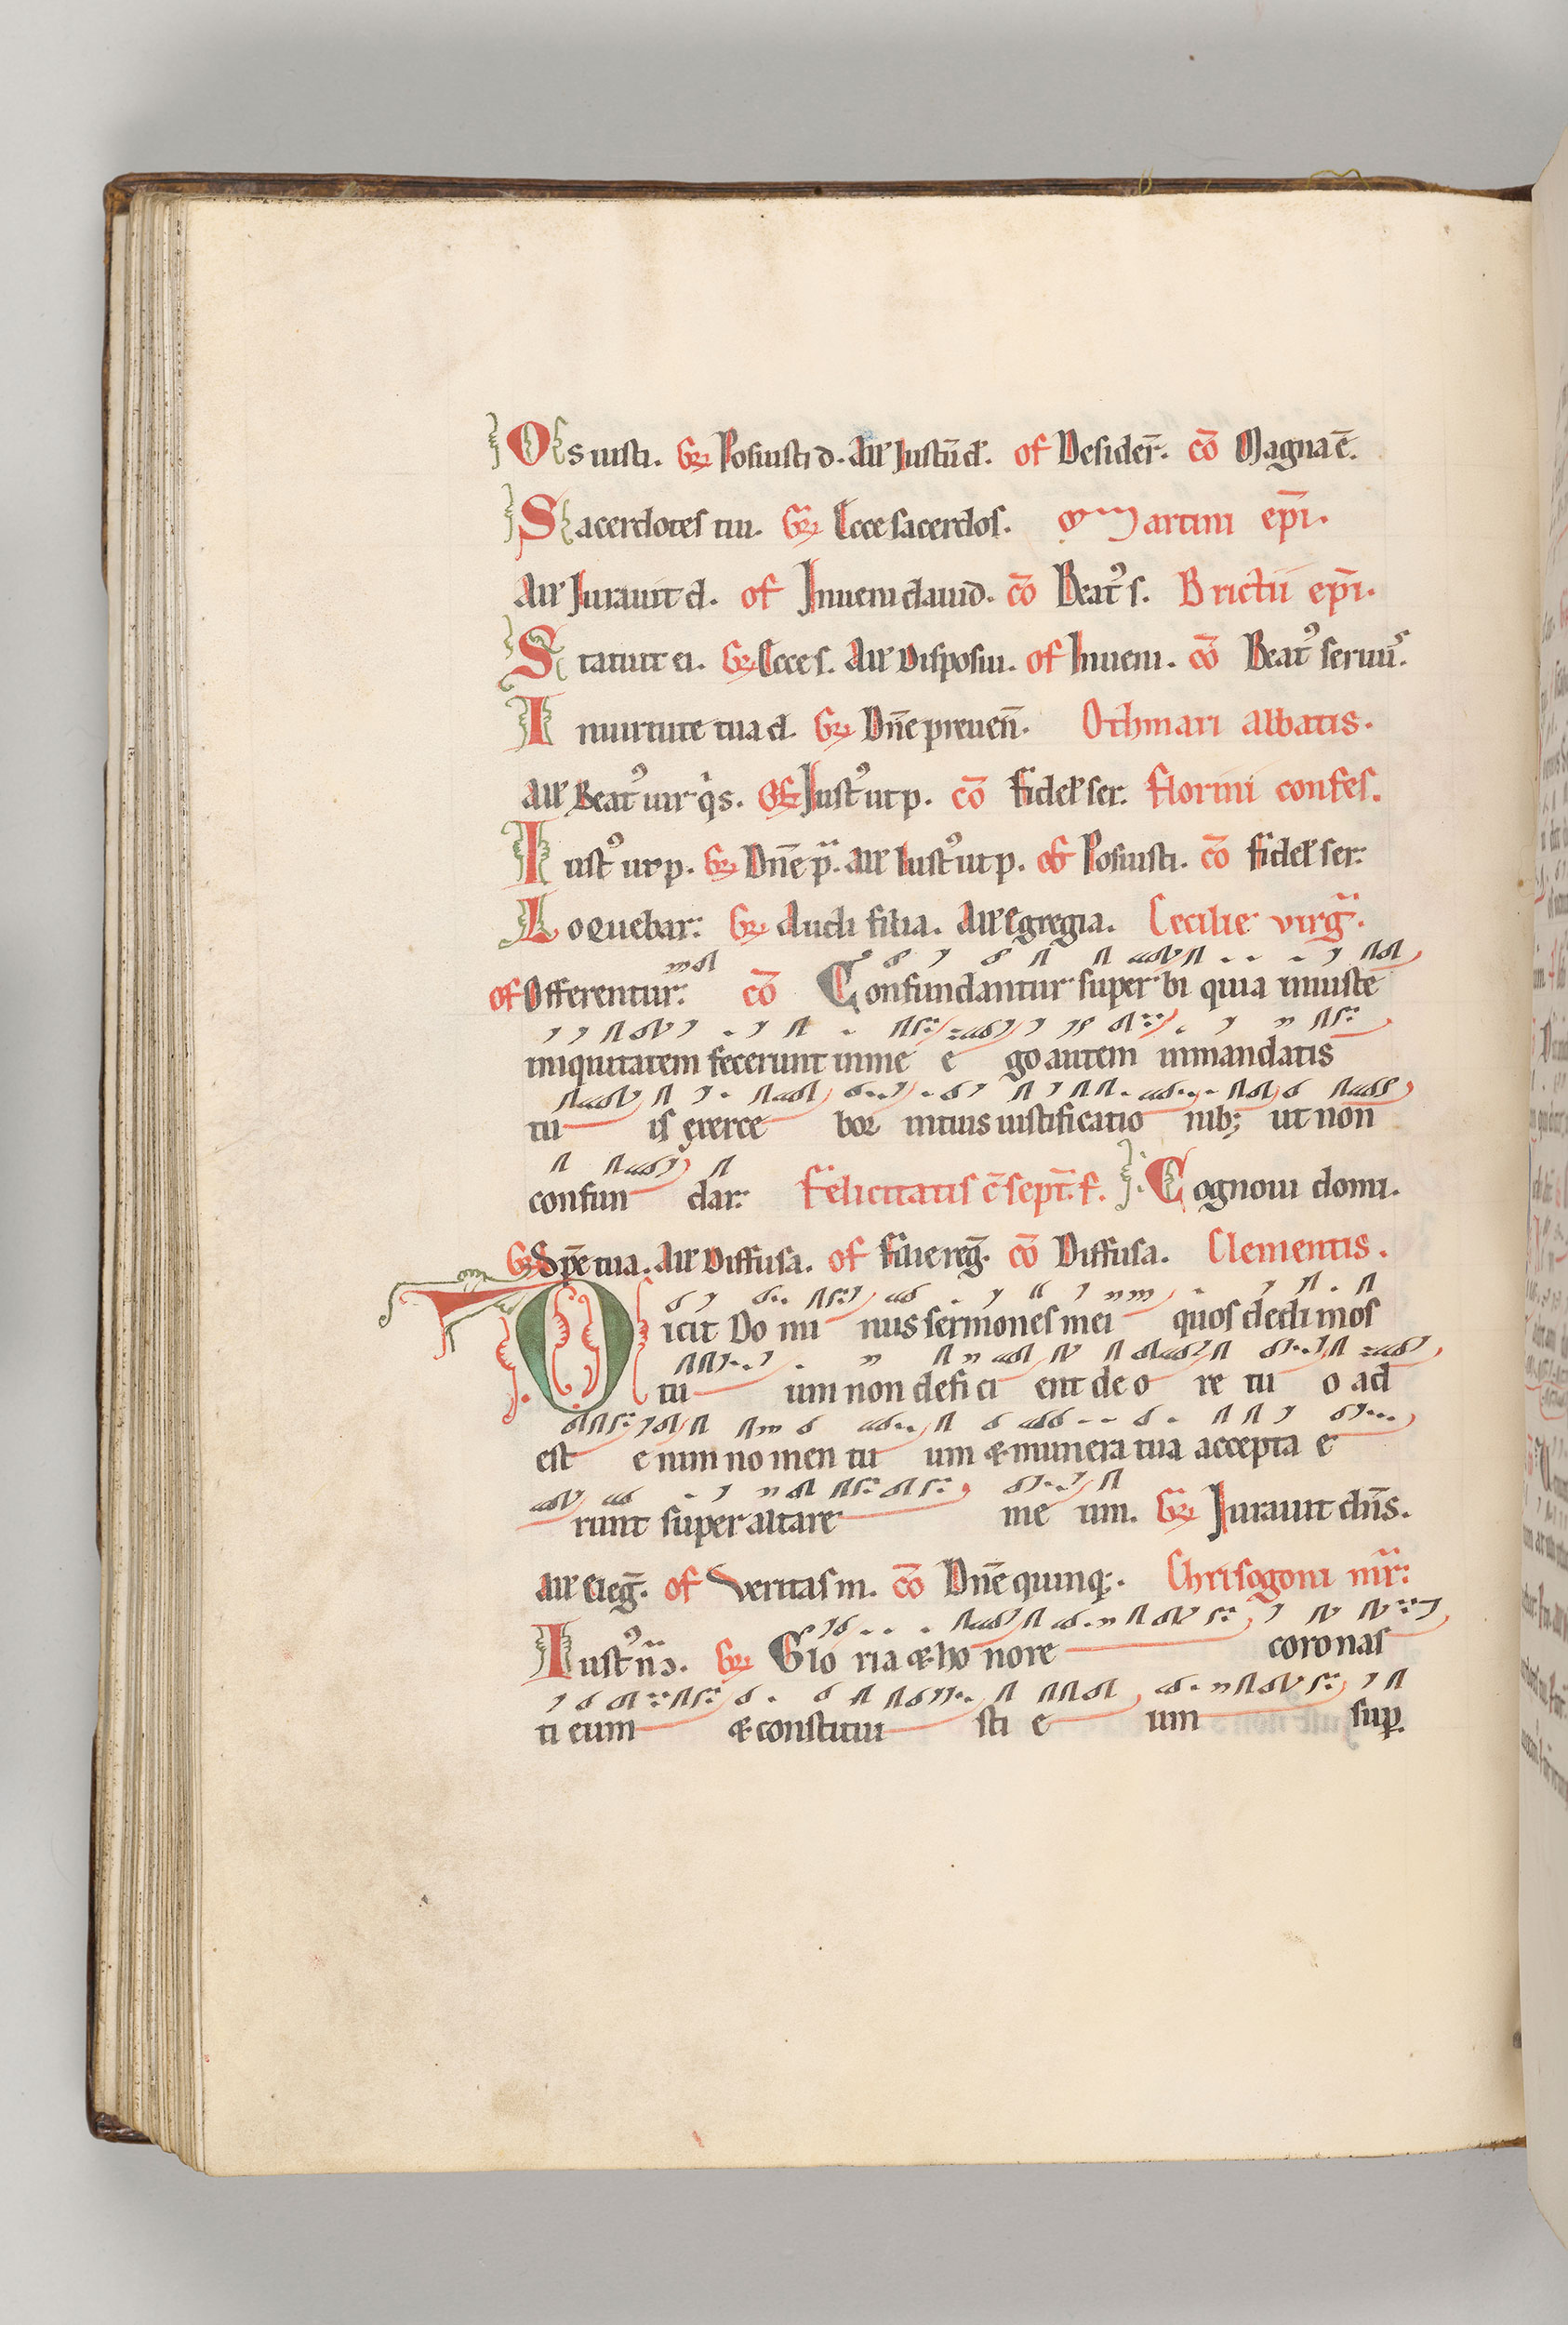 Os iusti. Gr̄ Posuisti d. All' Iustū d'. Of Desider̄. Cō Magna ē.
Sacerdotes tui. Gr̄ Ecce sacerdos. Martini ep̄i.
All' Iurauit d. Of Inueni dauid. Cō Beat᾿ s. Brictii ep̄i.
Statuit ei. Gr̄ Ecce s. All' Disposui. Of Inueni. Cō Beat᾿ seruu᾿.
In uirtute tua d. Gr̄ Dn̄e preuen̄. Othmari abbatis.
All' Beat᾿ uir q̇ s. Of Iust᾿ ut p. Cō Fidel' ser. Florini confes.
Iust᾿ ut p. Gr̄ Dn̄e p. All' Iust᾿ ut p. Of Posuisti. Cō Fidel' ser.
Loquebar. Gr̄ Audi filia. All' Egregia. Cecilie virḡ.
Of Offerentur. Cō Confundantur superbi quia iniuste
iniquitatem fecerunt in me e go autem in mandatis
tu is exerce bor in tuis iustificatio nib; ut non
confun dar. Felicitatis c̄ sept. f. Cognoui domi.
Gr̄ Spē tua. All' Diffusa. Of Filie reḡ. Cō Diffusa. Clementis.
Dicit Do mi nus sermones mei quos dedi in os
tu um non defici ent de o re tu o ad
est enim nomen tu um & munera tua accepta e
runt super altare me um. Gr̄ Iurauit dn̄s.
All' Eleḡ. Of Veritas m. Cō Dn̄e quinq;. Chrisogoni mr̄.
Iust᾿ n̄ ɔ. Gr̄ Glo ria & ho nore coronas
ti eum & constitui sti e um sup.